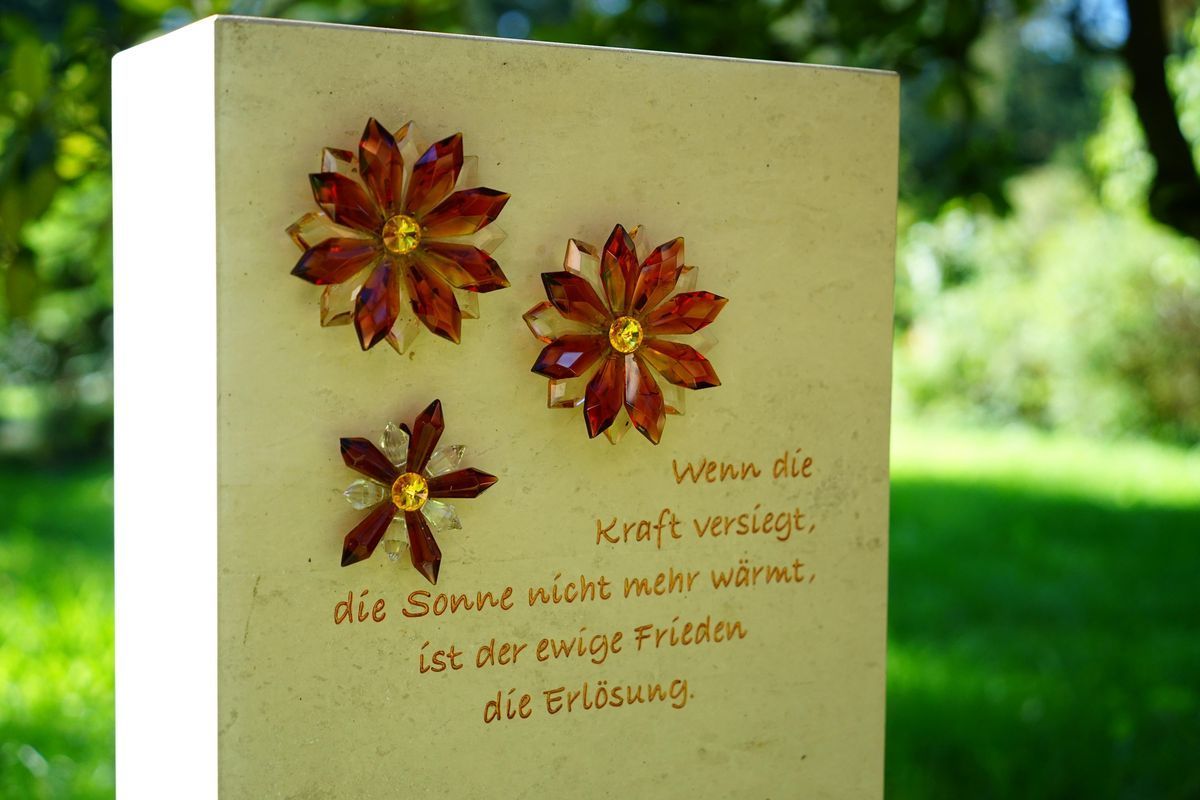 Wenn die
Kraft versiegt,
die Sonne nicht mehr wärmt,
ist der ewige Frieden
die Erlösung.